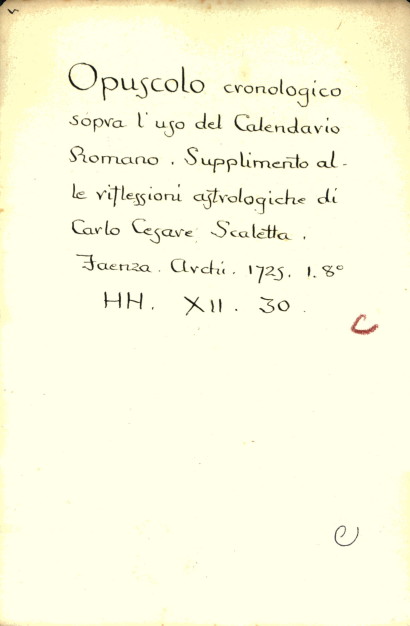 Opuscolo cronologico
sopra l'uso del Calendario
Romano. Supplimento al-
le riflessioni astrologiche di
Carlo Cesare Scaletta.
Faenza. Archi. 1725. 1. 8°
HH. XII. 30.
C
C